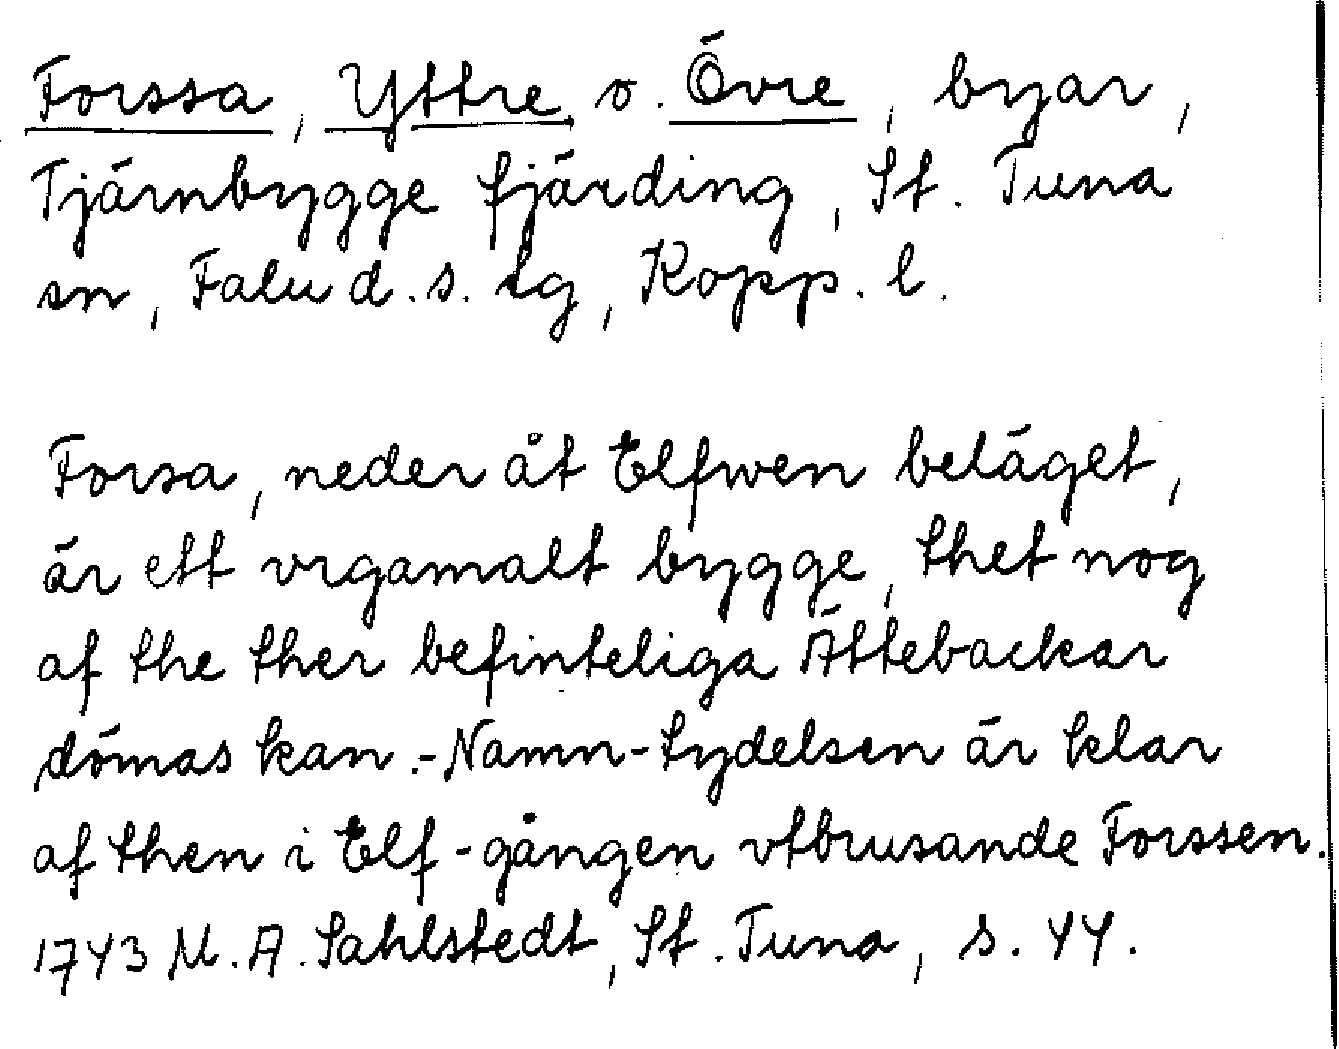 Forssa, Yttre o. Övre, byar,
Tjärnbygge fjärding, St. Tuna
sn, Falu d. s. lg, Kopp. l.
Forsa, neder åt Elfwen beläget,
är ett vrgamalt bygge, thet nog
af the ther befinteliga Ättebackar
dömas kan.-Namn-tydelsen är klar
af then i Elf-gången vtbrusande Forssen.
1743 M. A. Sahlstedt, St. Tuna, s. 44.